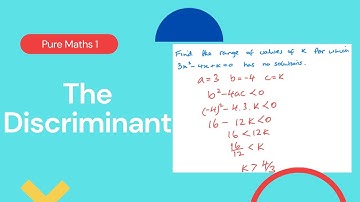 Pure Maths 1
The
Discriminant
Find the range of values of k for which
3x²-4x+k=0 has no solutions.
a=3 b=-4 c=k
b²-4ac<0
(-4)²-4.3.k<0
16-12k<0
16<12k
16/12<k
k>4/3